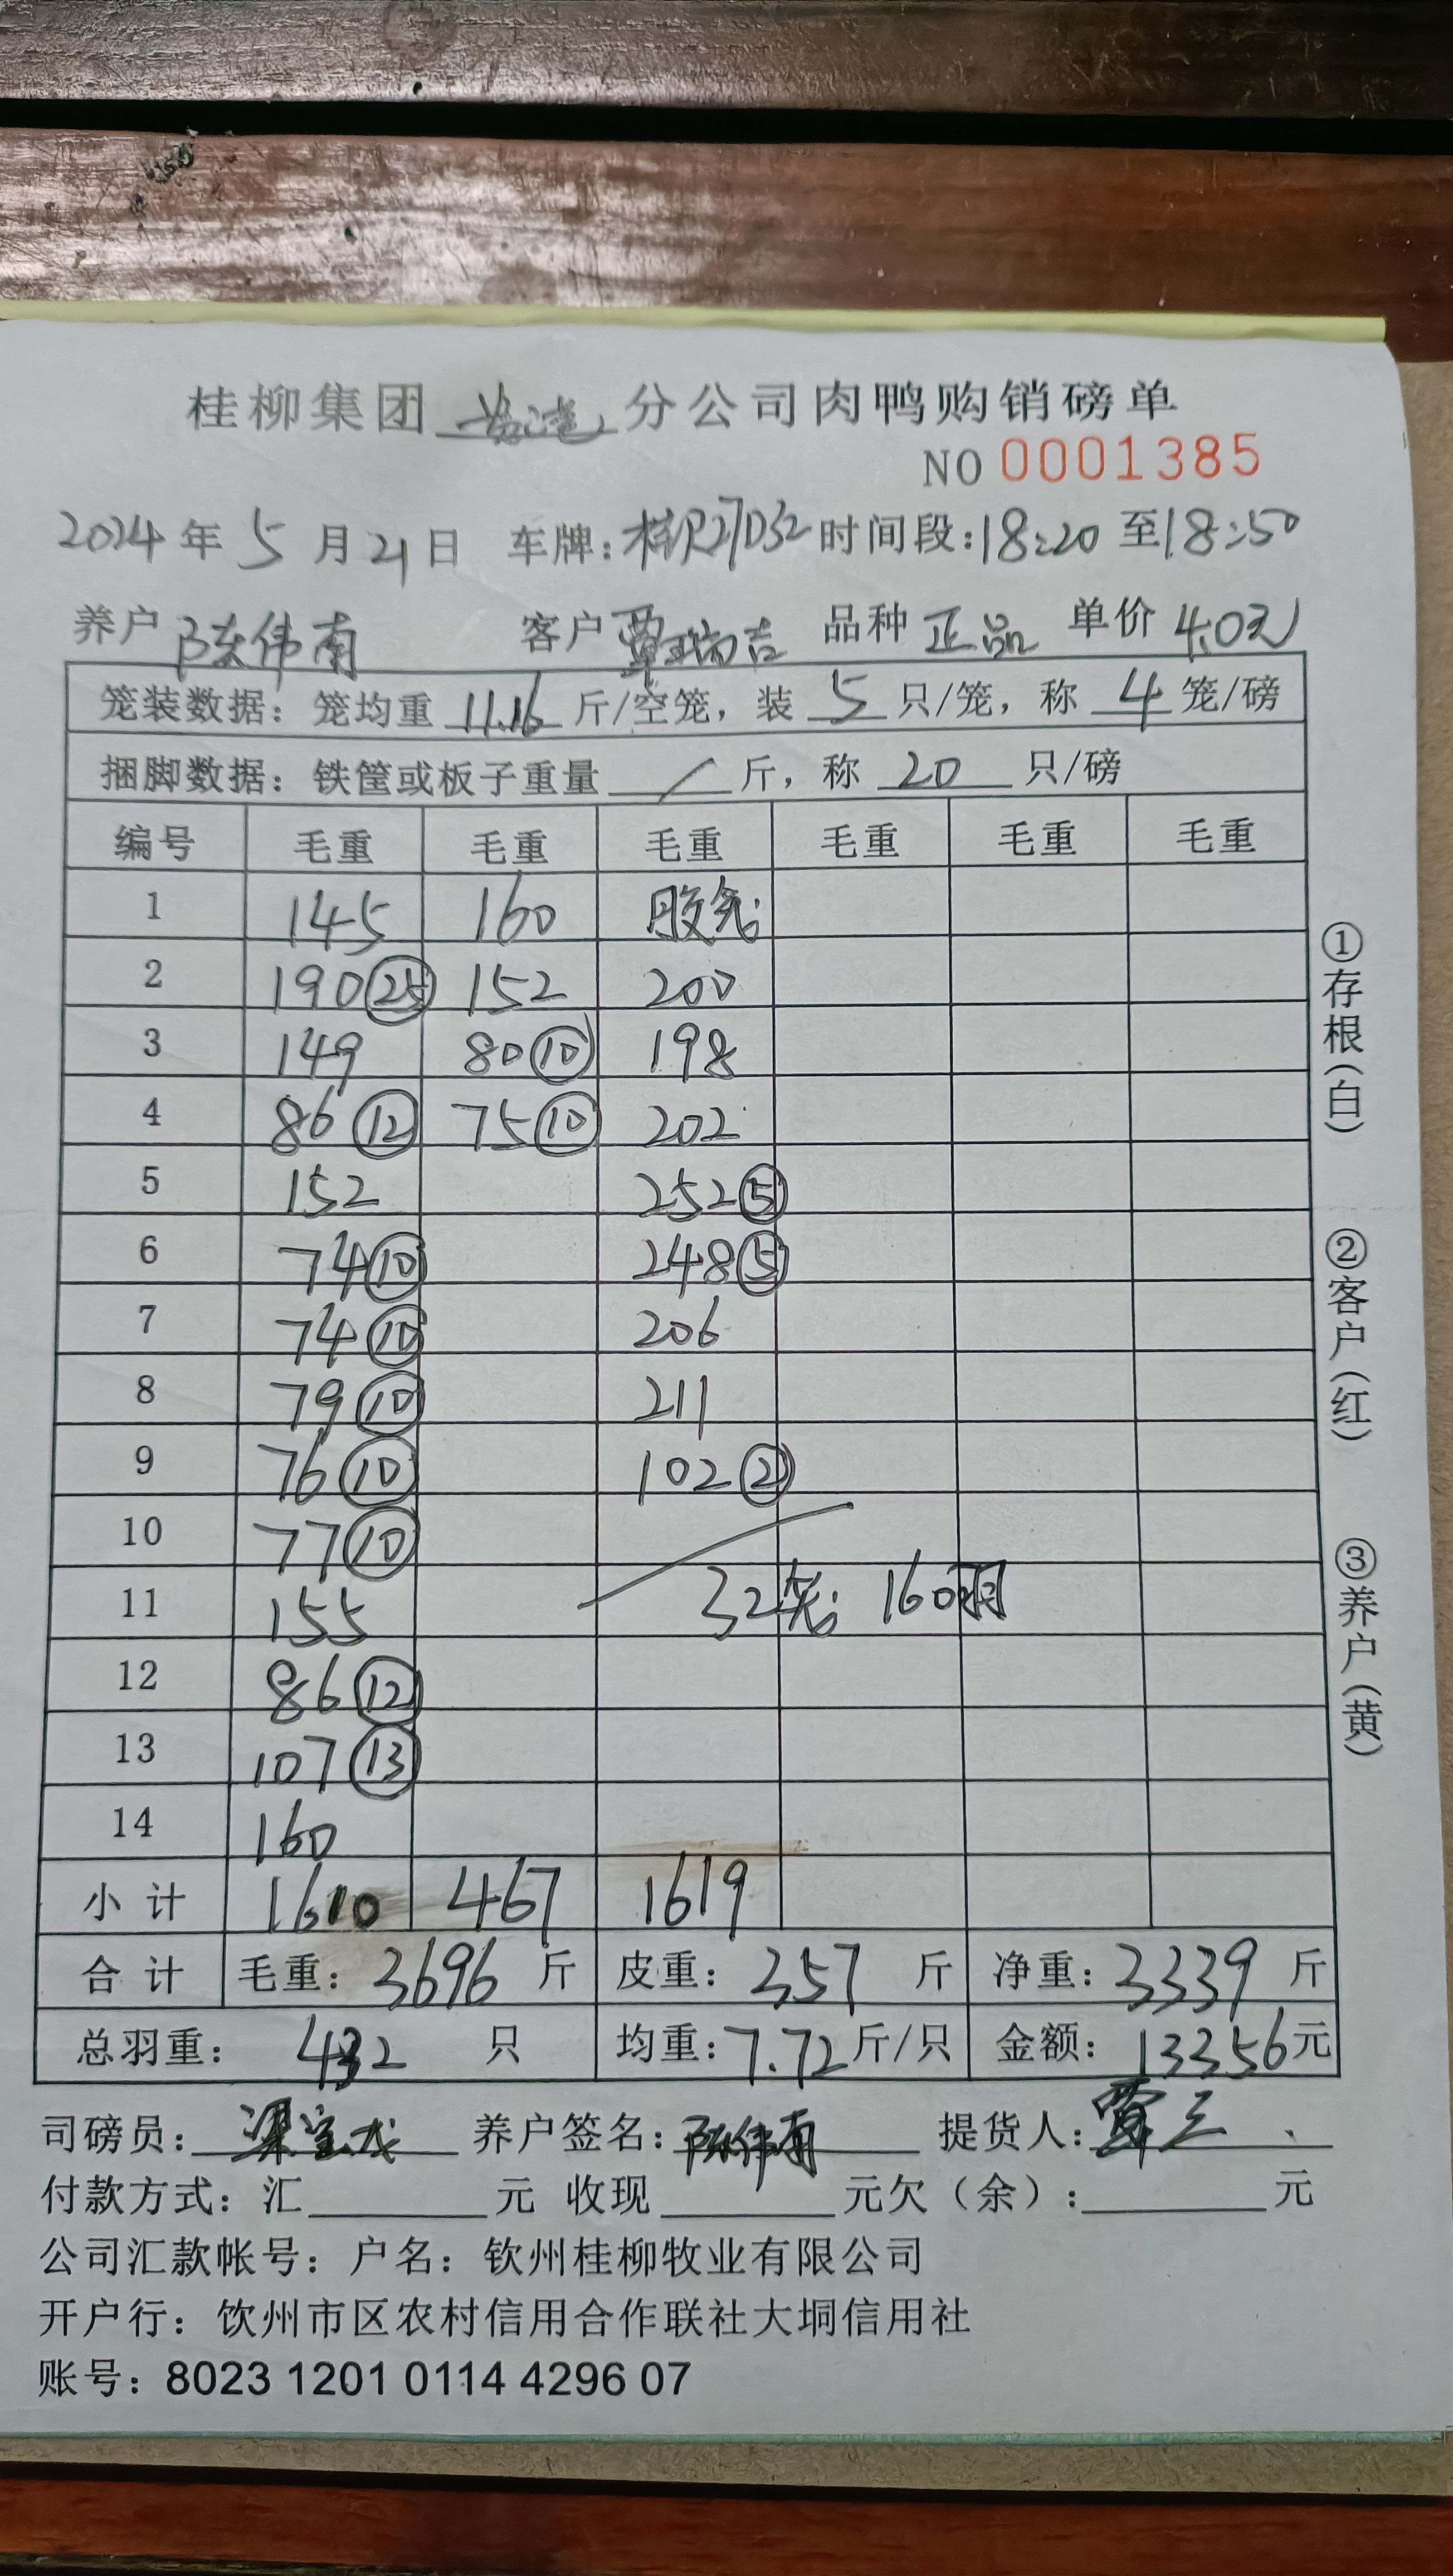 桂柳集团 分公司肉鸭购销磅单
NO 0001385
2024年5月21日 车牌: 27D32 时间段:18:20至18:50
养户 陈伟南 客户 覃瑞吉 品种 正品 单价 4.0元
笼装数据: 笼均重 11.16 斤/空笼, 装 5 只/笼, 称 4 笼/磅
捆脚数据: 铁筐或板子重量 / 斤, 称 20 只/磅
编号 毛重 毛重 毛重 毛重 毛重 毛重
1 145 160
2 190 ㉕ 152 200
3 149 80 ⑩ 198
4 86 ⑫ 75 ⑩ 202
5 152 252 ⑤
6 74 ⑩ 248 ⑤
7 74 ⑩ 206
8 79 ⑩ 211
9 76 ⑩ 102 ②
10 77 ⑩
11 155 32笼: 160羽
12 86 ⑫
13 107 ⑬
14 160
小计 1610 467 1619
合计 毛重: 3696 斤 皮重: 357 斤 净重: 3339 斤
总羽重: 432 只 均重: 7.72 斤/只 金额: 13356元
司磅员: 养户签名: 陈伟南 提货人: 覃三
付款方式: 汇 元 收现 元欠(余): 元
公司汇款帐号: 户名: 钦州桂柳牧业有限公司
开户行: 饮州市区农村信用合作联社大垌信用社
账号: 8023 1201 0114 4296 07
①存根(白)
②客户(红)
③养户(黄)